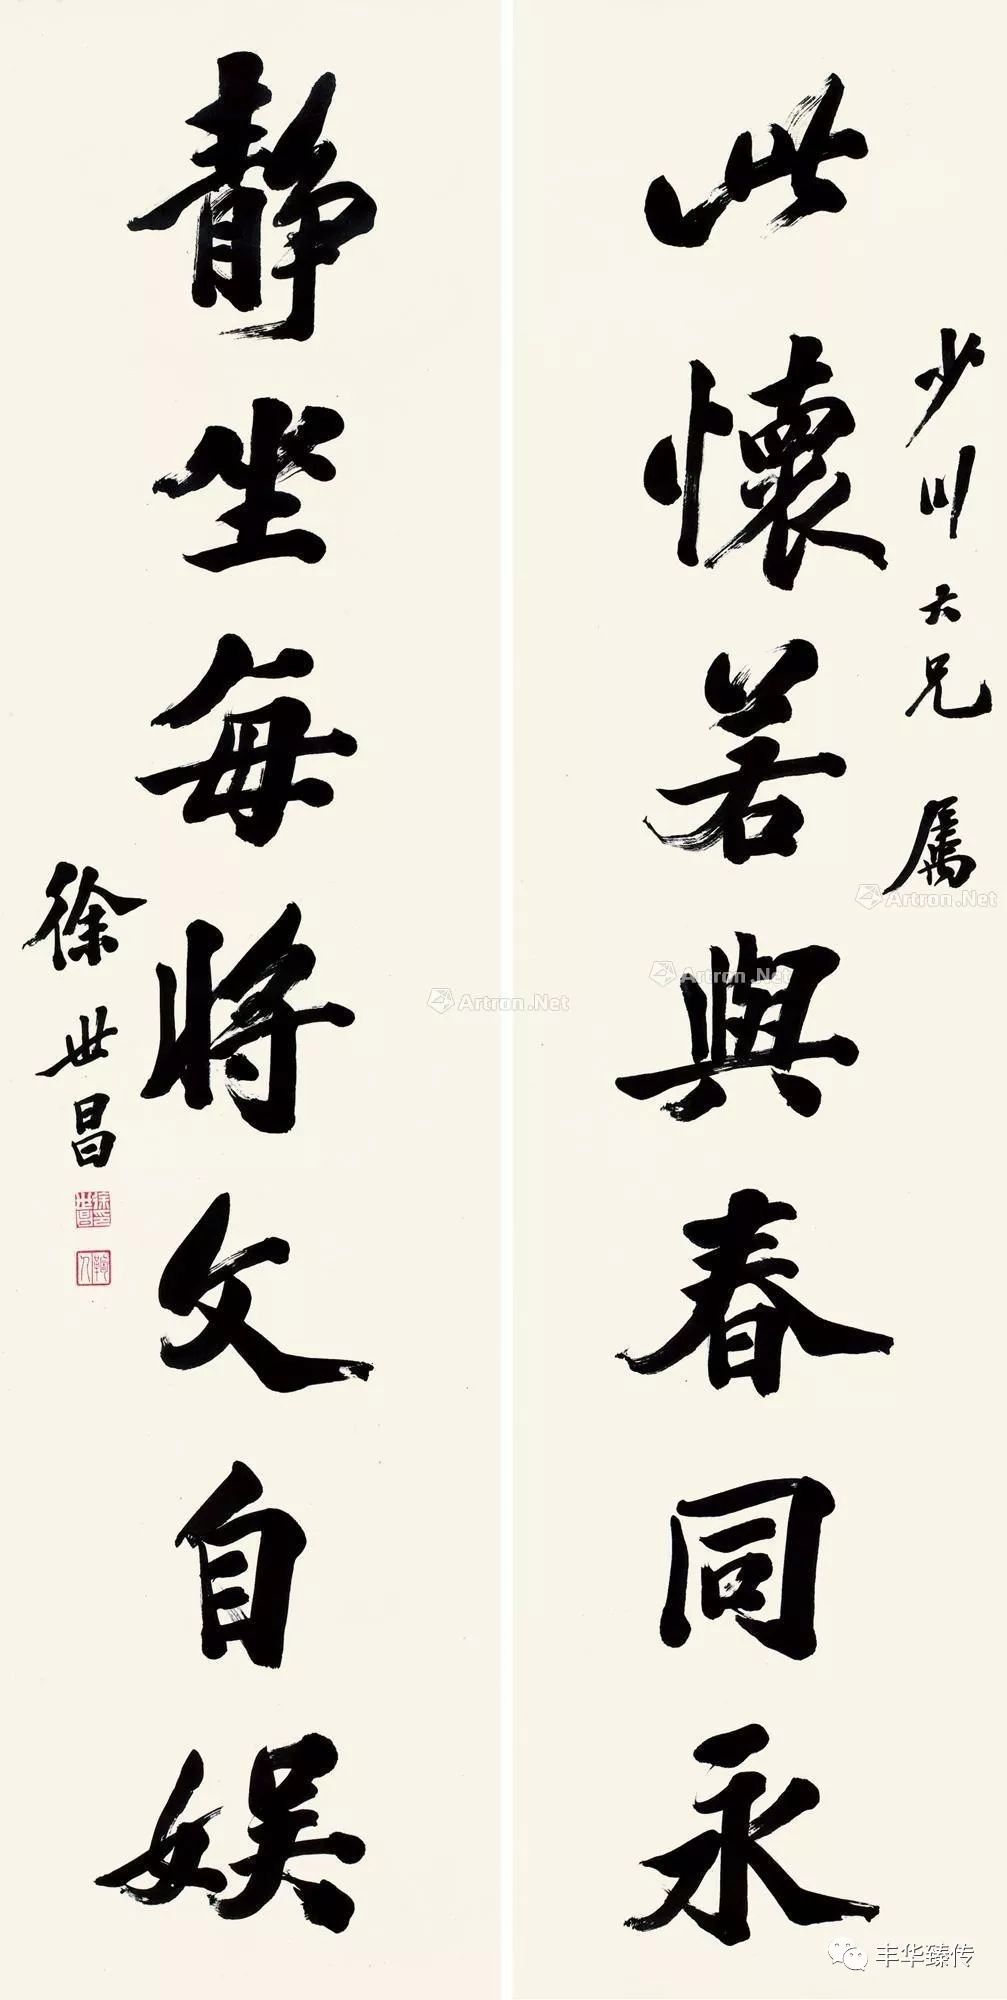 少川大兄属
此懷若與春同永
靜坐每將文自娱
徐世昌
Artron.Net
Artron.Net
Artron.Net
丰华臻传